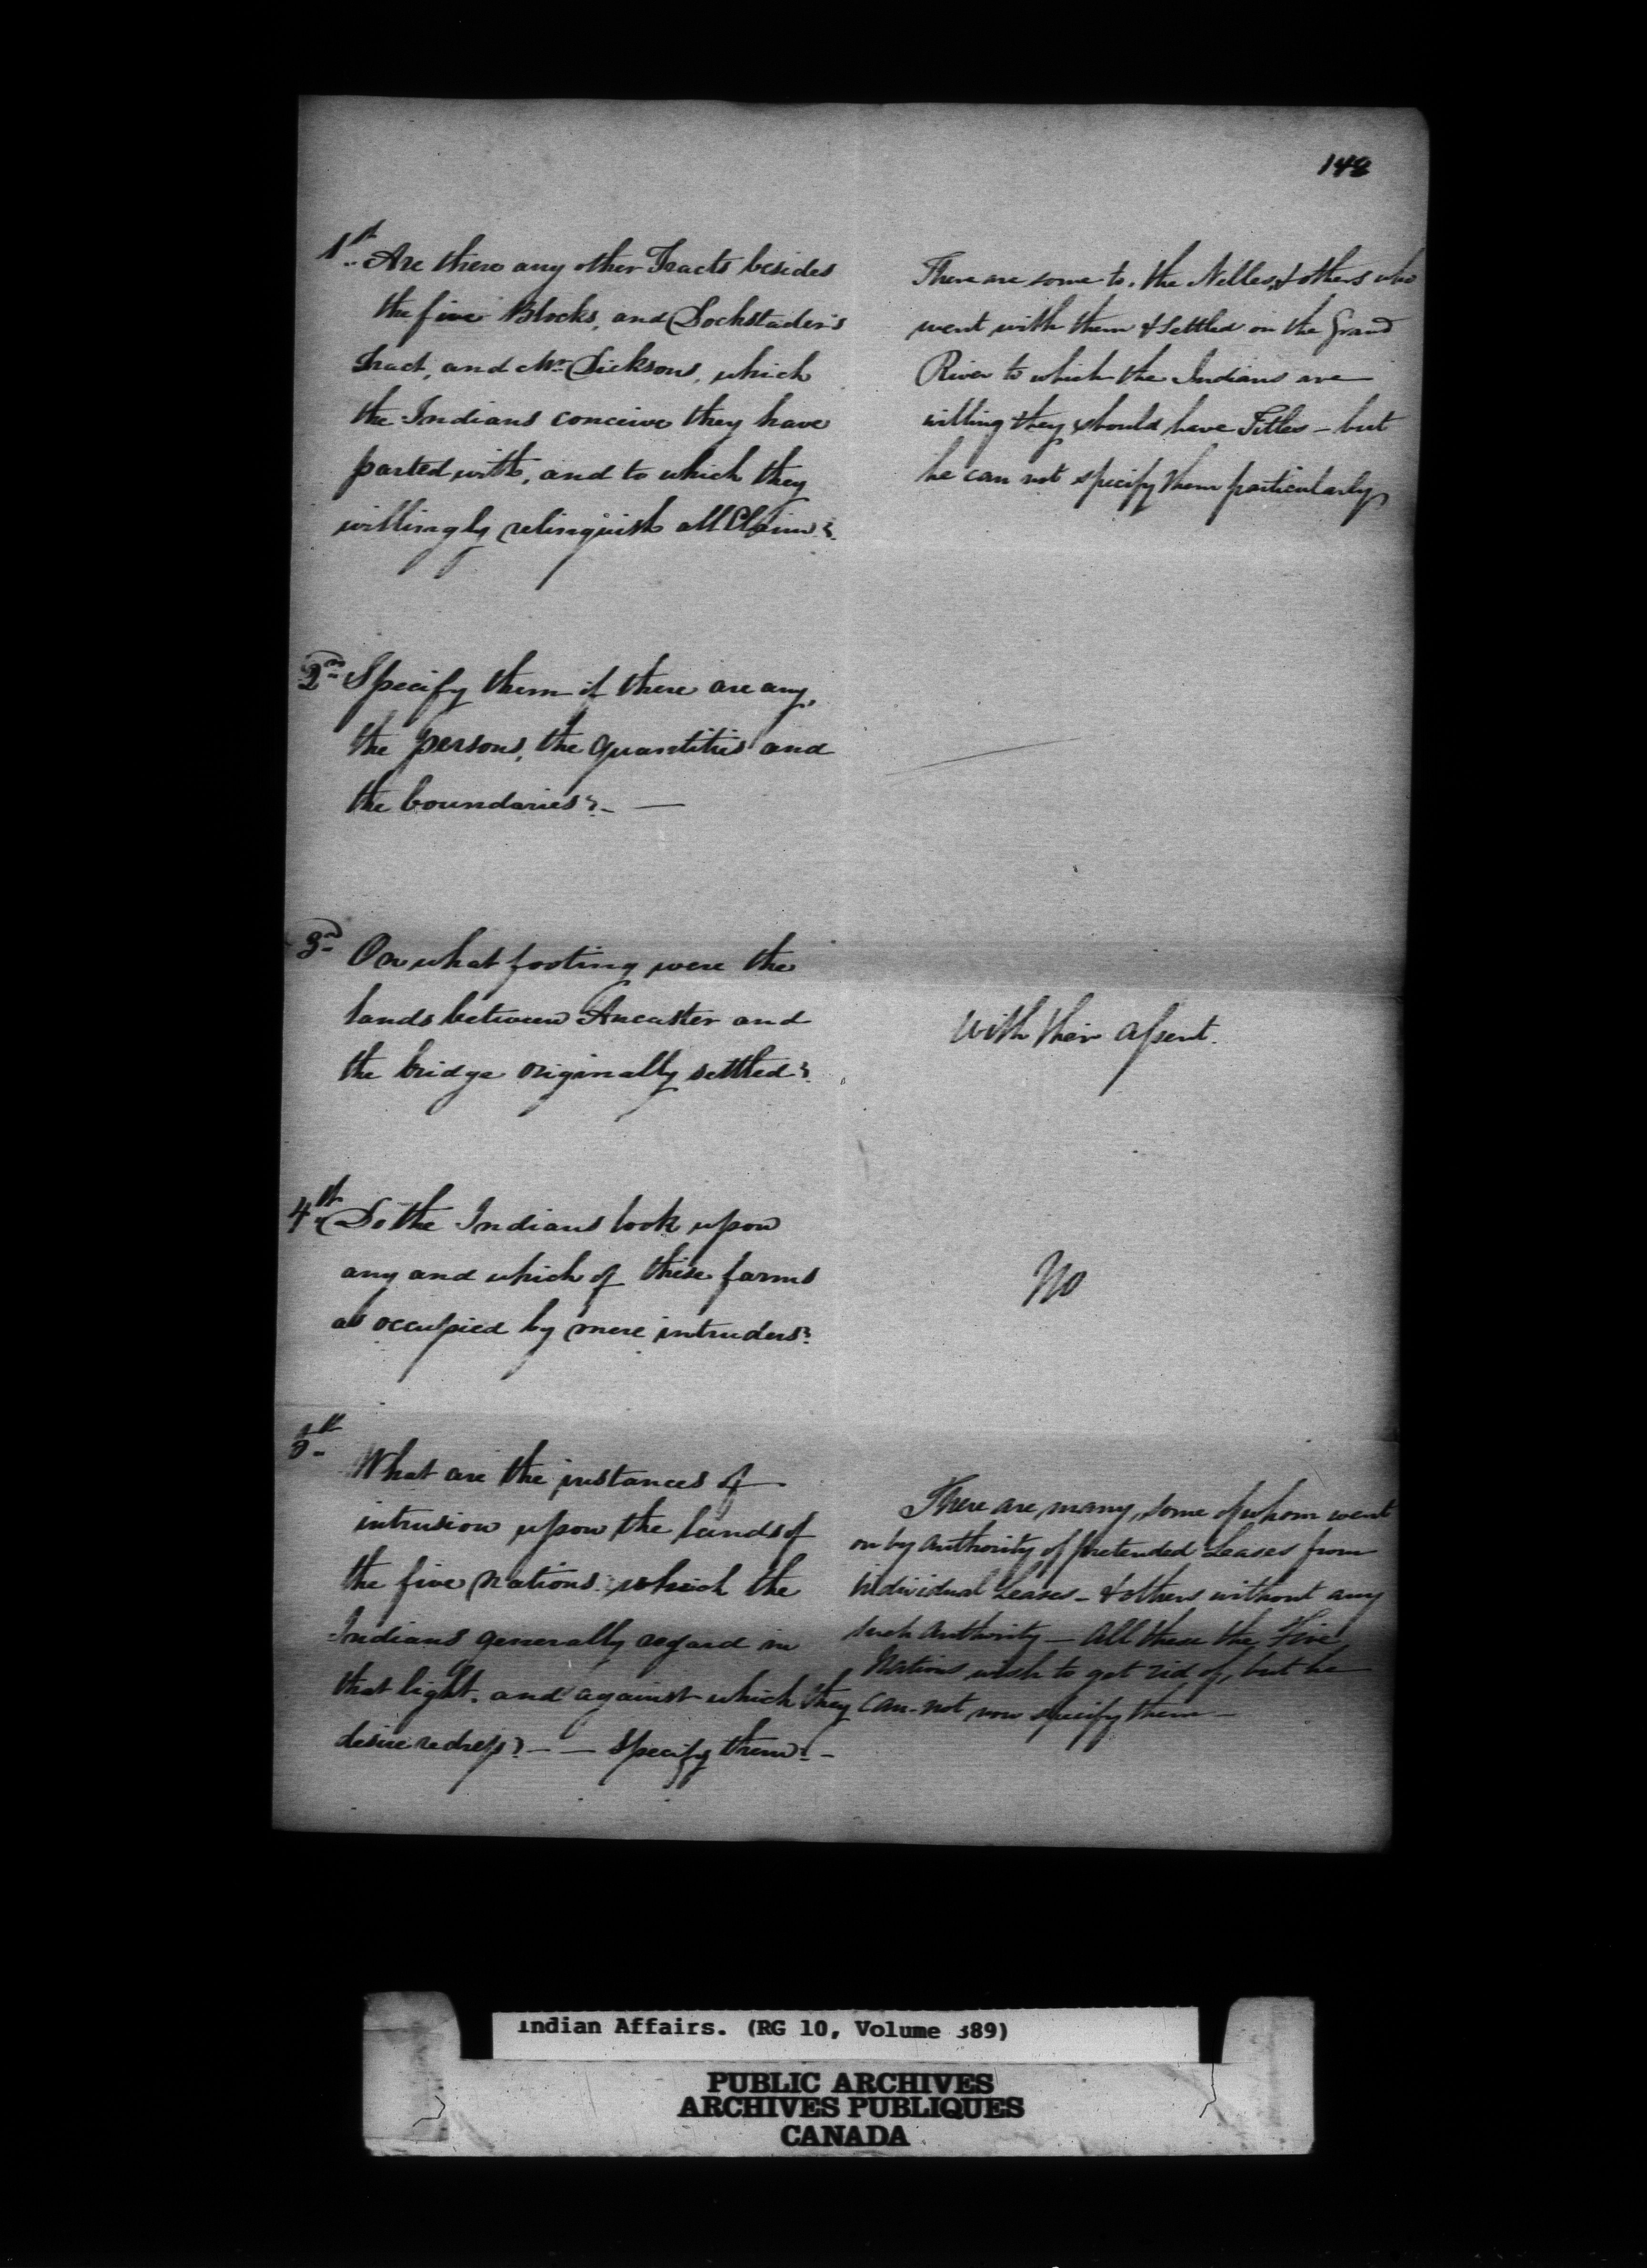 148
1st Are there any other Tracts besides
the five Blocks, and Dockstader's
Tract, and Mr Dicksons, which
the Indians conceive they have
parted with, and to which they
willingly relinquish all Claim?
There are some to. the Nelles, & others who
went with them & settled on the Grand
River to which the Indians are
willing they should have Titles - but
he can not specify them particularly
2nd Specify them if there are any,
the persons, the quantities and
the boundaries? - —
3rd On what footing were the
lands between Ancaster and
the bridge originally settled?
With their assent.
4th Do the Indians look upon
any and which of these farms
as occupied by mere intruders?
No
5th
What are the instances of
intrusion upon the lands of
the five Nations which the
Indians generally regard in
that light, and against which they
desire redress? - — Specify them? -
There are many, some of whom went
on by authority of pretended Leases from
individual Leases - & others without any
such Authority - All these the Five
Nations wish to get rid of, but he
can-not now specify them -
Indian Affairs. (RG 10, Volume 389)
PUBLIC ARCHIVES
ARCHIVES PUBLIQUES
CANADA